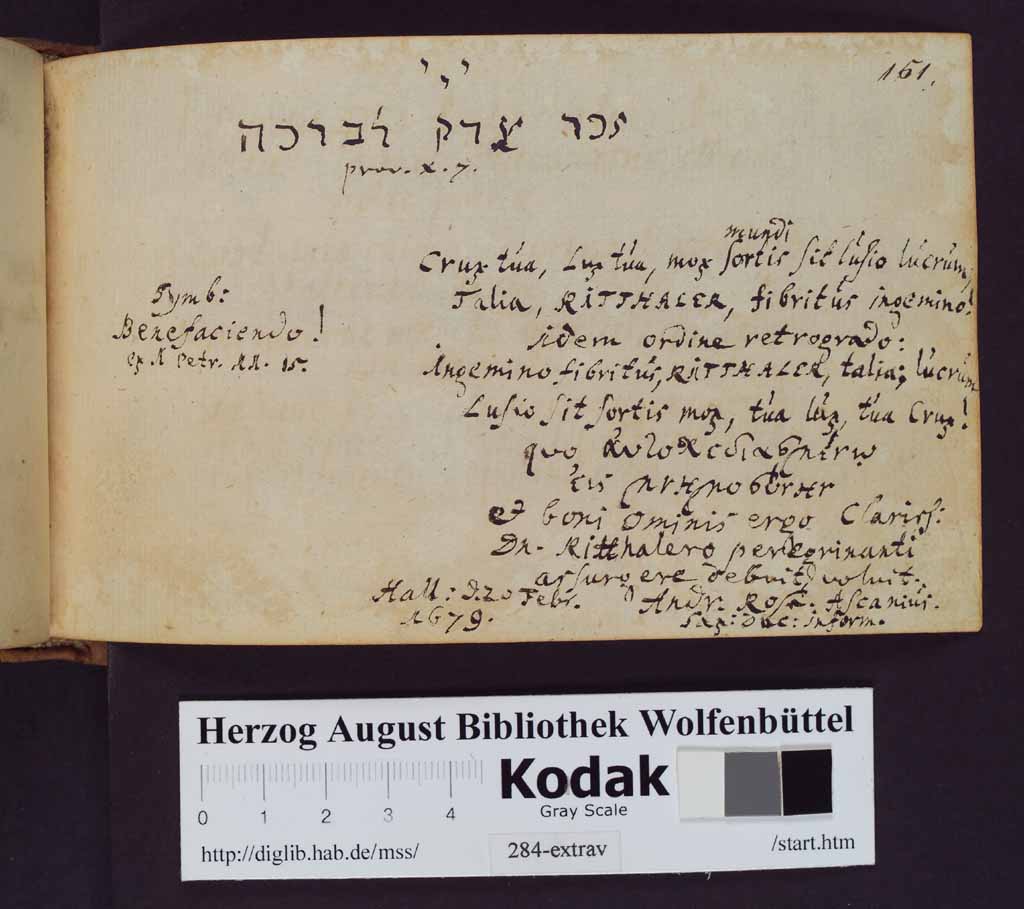 161.
י י י
זכר צדק לברכה
prov. X. 7.
mundi
Crux tua, Lux tua, mox sortis sit lusio lucrum,
Talia, RITTHALER, fibritus ingemino!
idem ordine retrogrado:
Ingemino fibritus, RITTHALER, talia; lucrum
Lusio sit sortis mox, tua lux, tua Crux!
Symb:
Benefaciendo!
ex 1 Petr. 11. 15.
quo
εις
et boni ominis ergo Clariss:
Dn. Ritthalero peregrinanti
assurgere debuit voluit.
Hall: d. 20 Febr.
1679.
Andr. Rose. Ascanius.
Sax: inform.
Herzog August Bibliothek Wolfenbüttel
Kodak
Gray Scale
0 1 2 3 4
http://diglib.hab.de/mss/
284-extrav
/start.htm